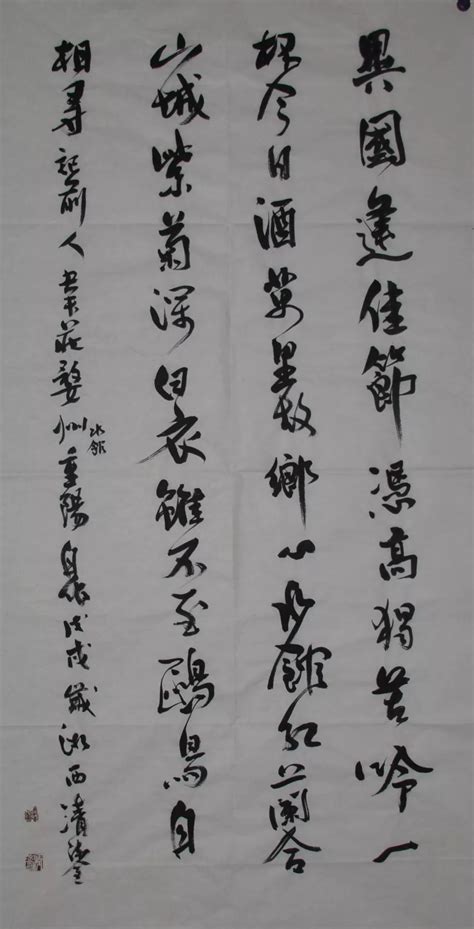 異國逢佳節憑高獨苦吟一
杯今日酒萬里故鄉心水館紅蘭合
山城紫菊深白衣雖不至鷗鳥自
相尋 前人 莊婺州水館重陽日作戊戌歲 西清